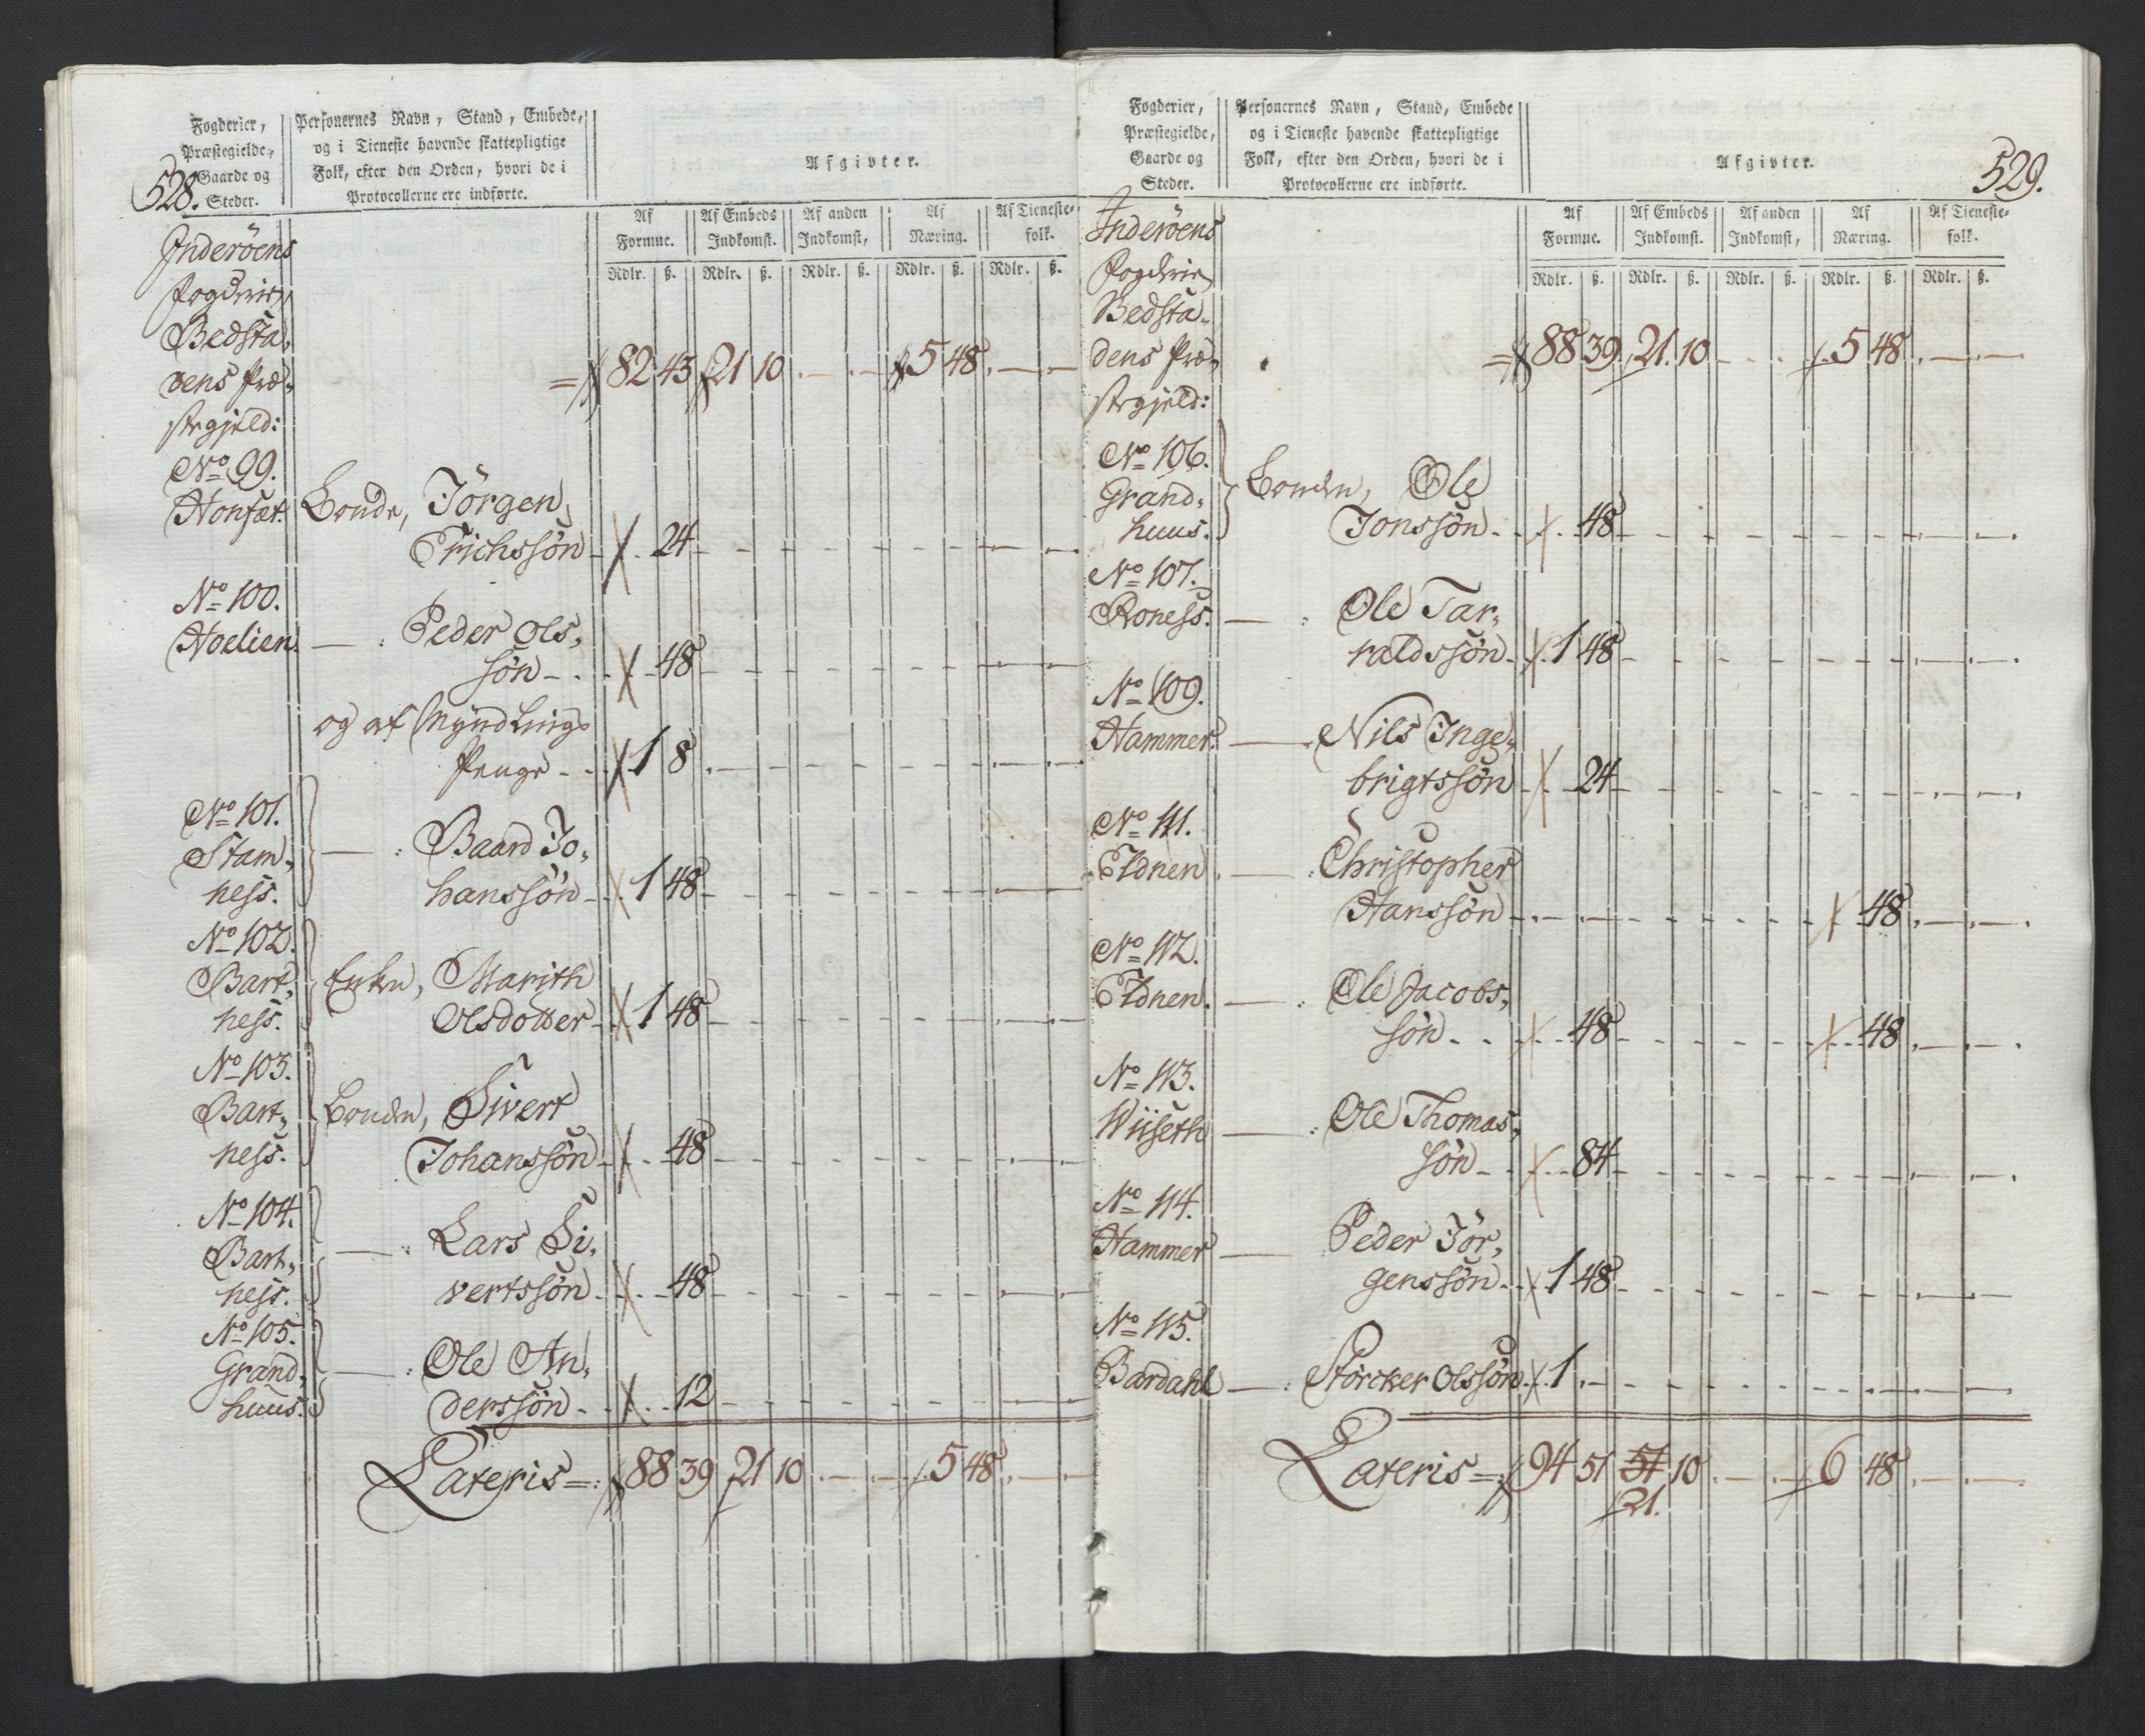 528.
Fogderier,
Præstegielde,
Gaarde og
Steder.
Personernes Navn, Stand, Embede,
og i Tieneste havende skattepligtige
Folk, efter den Orden, hvori de i
Protocollerne ere indførte.
Afgivter.
Af
Formue.
Af Embeds
Indkomst.
Af anden
Indkomst,
Af
Næring.
Af Tieneste-
folk.
Rdlr. ß. Rdlr. ß. Rdlr. ß. Rdlr. ß. Rdlr. ß.
Inderöens
Fogderie,
Bedsta-
dens Præ-
stegjeld:
82 43 21 10 5 48
No 99.
Honsæt. Bonde, Jörgen
Erichssön 24
No 100.
Hoelien. — : Peder Ols-
sön 48
og af Myndlings
Penge 1 8
No 101.
Stam- — : Baard Jo-
ness. hanssön 1 48
No 102.
Bart- Enken, Marith
ness. Olsdotter 1 48
No 103.
Bart- Bonden, Sivert
ness. Johanssön 48
No 104.
Bart- — : Lars Si-
ness. vertssön 48
No 105.
Grand- — : Ole An-
huus. derssön 12
Lateris = 88 39 21 10 5 48
529.
Fogderier,
Præstegielde,
Gaarde og
Steder.
Personernes Navn, Stand, Embede
og i Tieneste havende skattepligtige
Folk, efter den Orden, hvori de i
Protocollerne ere indførte.
Afgivter.
Af
Formue.
Af Embeds
Indkomst.
Af anden
Indkomst,
Af
Næring.
Af Tieneste-
folk.
Rdlr. ß. Rdlr. ß. Rdlr. ß. Rdlr. ß. Rdlr. ß.
Inderöens
Fogderie
Bedsta-
dens Præ-
stegjeld:
88 39 21. 10 5 48
No 106.
Grand- Bonden, Ole
huus. Jonssön 48
No 107.
Roness. — : Ole Tar-
raldssön 1 48
No 109.
Hammer. — : Nils Inge-
brigtssön 24
No 111.
Eldnen. — : Christopher
Hanssön 48
No 112.
Eldnen. — : Ole Jacobs-
sön 48 48
No 113.
Wiiseth — : Ole Thomas-
sön 84
No 114.
Hammer — Peder Jör-
genssön 1 48
No 115.
Bardahl — : Störcker Olssön 1
Lateris = 94 51 51 10 6 48
21.